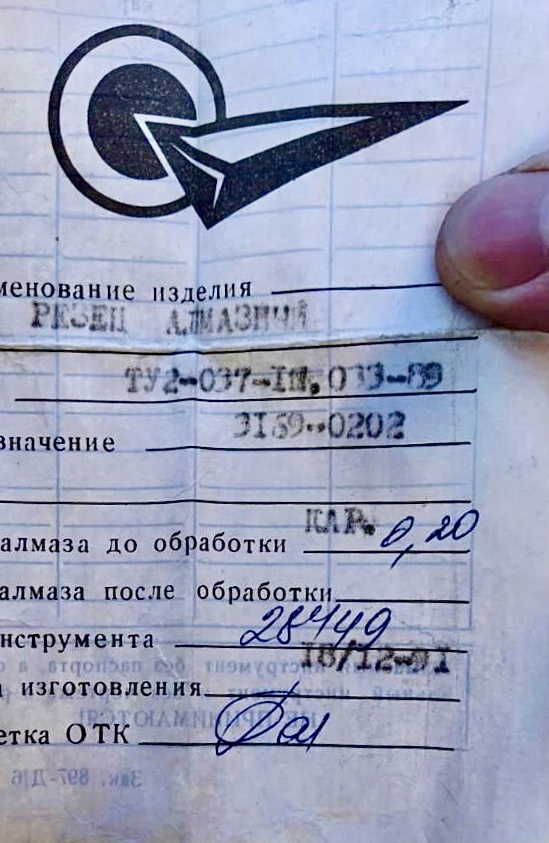 менование изделия
РЕЗЕЦ АЛМАЗНЫЙ
ТУ2-037-
значение
0202
КАР. 0,20
алмаза до обработки
алмаза после обработки
28449
нструмента
18/12-91
изготовления
етка ОТК
Зак. 897-Д/6